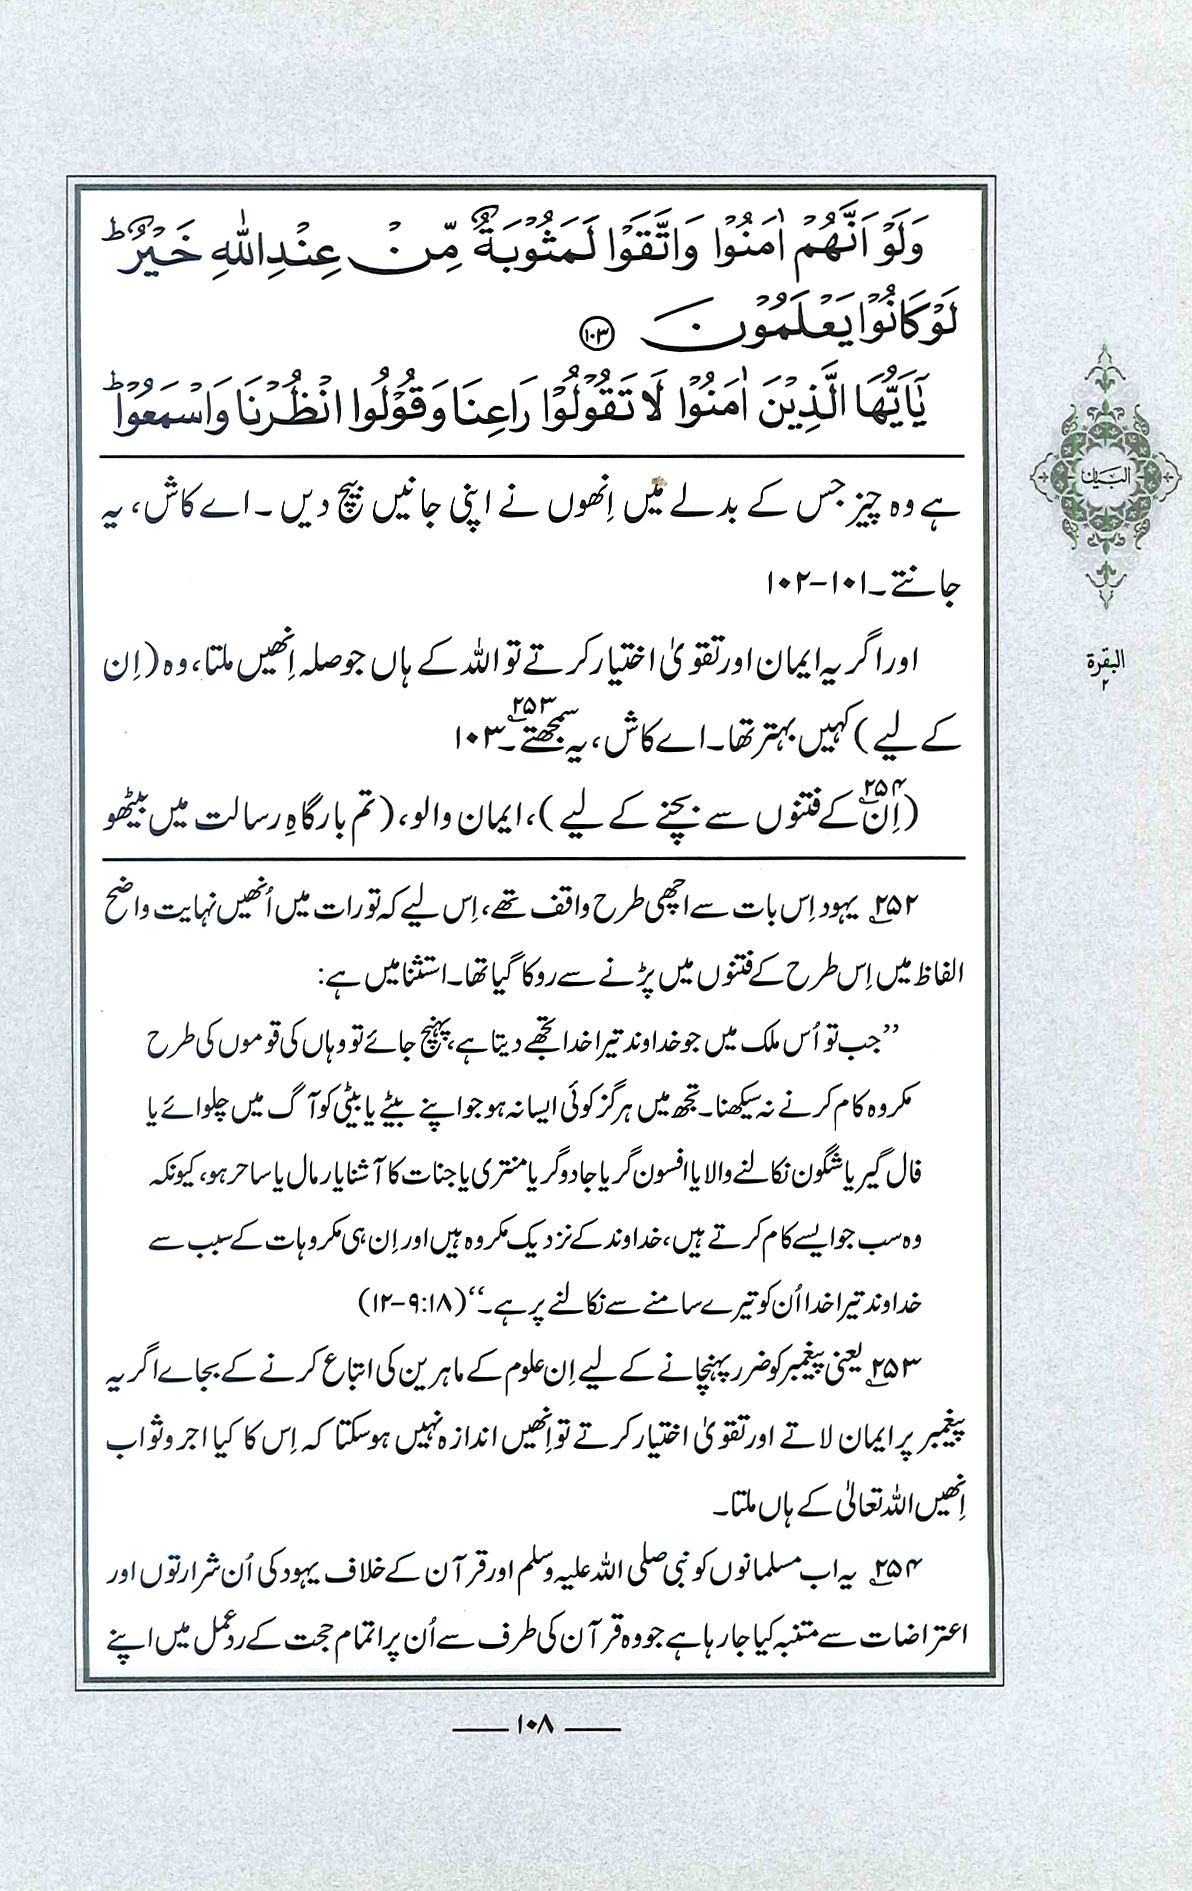 وَلَوْ اَنَّهُمْ اٰمَنُوْا وَاتَّقَوْا لَمَثُوْبَةٌ مِّنْ عِنْدِ اللّٰهِ خَيْرٌ ؕ
لَوْ كَانُوْا يَعْلَمُوْنَ ﴿۱۰۳﴾
يٰٓاَيُّهَا الَّذِيْنَ اٰمَنُوْا لَا تَقُوْلُوْا رَاعِنَا وَقُوْلُوا انْظُرْنَا وَاسْمَعُوْا ؕ
ہے وہ چیز جس کے بدلے میں اِنھوں نے اپنی جانیں بیچ دیں۔ اے کاش، یہ
جانتے۔ ۱۰۱-۱۰۲
اور اگر یہ ایمان اور تقویٰ اختیار کرتے تو اللہ کے ہاں جو صلہ اِنھیں ملتا، وہ (اِن
کے لیے) کہیں بہتر تھا۔ اے کاش، یہ سمجھتے۲۵۳۔ ۱۰۳
(اِن۲۵۴ کے فتنوں سے بچنے کے لیے)، ایمان والو، (تم بارگاہِ رسالت میں بیٹھو
۲۵۲ یہود اِس بات سے اچھی طرح واقف تھے، اِس لیے کہ تورات میں اُنھیں نہایت واضح
الفاظ میں اِس طرح کے فتنوں میں پڑنے سے روکا گیا تھا۔ استثنا میں ہے:
’’جب تو اُس ملک میں جو خداوند تیرا خدا تجھے دیتا ہے، پہنچ جائے تو وہاں کی قوموں کی طرح
مکروہ کام کرنے نہ سیکھنا۔ تجھ میں ہرگز کوئی ایسا نہ ہو جو اپنے بیٹے یا بیٹی کو آگ میں چلوائے یا
فال گیر یا شگون نکالنے والا یا افسون گر یا جادوگر یا منتری یا جنات کا آشنا یا رمال یا ساحر ہو، کیونکہ
وہ سب جو ایسے کام کرتے ہیں، خداوند کے نزدیک مکروہ ہیں اور اِن ہی مکروہات کے سبب سے
خداوند تیرا خدا اُن کو تیرے سامنے سے نکالنے پر ہے۔‘‘ (۱۸:۹-۱۲)
۲۵۳ یعنی پیغمبر کو ضرر پہنچانے کے لیے اِن علوم کے ماہرین کی اتباع کرنے کے بجاے اگر یہ
پیغمبر پر ایمان لاتے اور تقویٰ اختیار کرتے تو اِنھیں اندازہ نہیں ہو سکتا کہ اِس کا کیا اجر و ثواب
اِنھیں اللہ تعالیٰ کے ہاں ملتا۔
۲۵۴ یہ اب مسلمانوں کو نبی صلی اللہ علیہ وسلم اور قرآن کے خلاف یہود کی اُن شرارتوں اور
اعتراضات سے متنبہ کیا جا رہا ہے جو وہ قرآن کی طرف سے اُن پر اتمام حجت کے ردعمل میں اپنے
البیان
البقرۃ
۲
۱۰۸